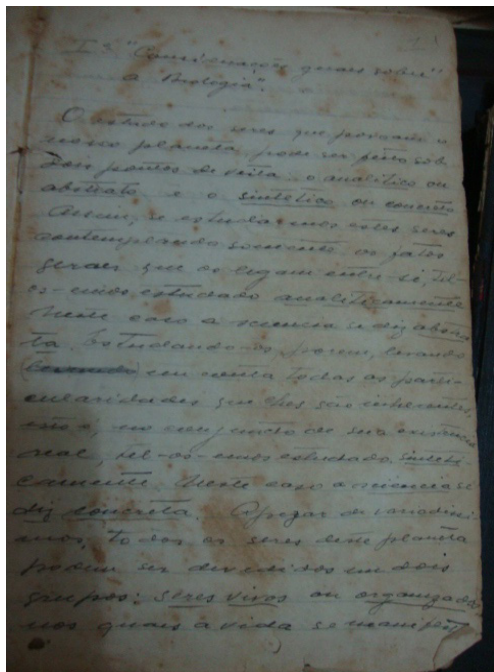 1
I § "Considerações geraes sobre"
a Biologia".
O estudo dos seres que povoam o
nosso planeta, pode ser feito sob
dois pontos de vista, o analitico ou
abstrato e o sintetico ou concreto
Assim, se estudarmos estes seres
contemplando somente os fatos
geraes que os ligam entre si, tel-
os-emos estudado analiticamente
Neste caso a sciencia se diz abstra
ta. Estudando-os porem, levando
em conta todas as parti-
cularidades que lhes são inherentes,
isto é, no conjuncto de sua existencia
real, tel-os-emos estudado sinteti-
camente. Neste caso a sciencia se
diz concreta. Apezar de variadissi-
mos, todos os seres deste planeta
podem ser devedidos em dois
grupos: seres vivos ou organizados
nos quaes a vida se manifest